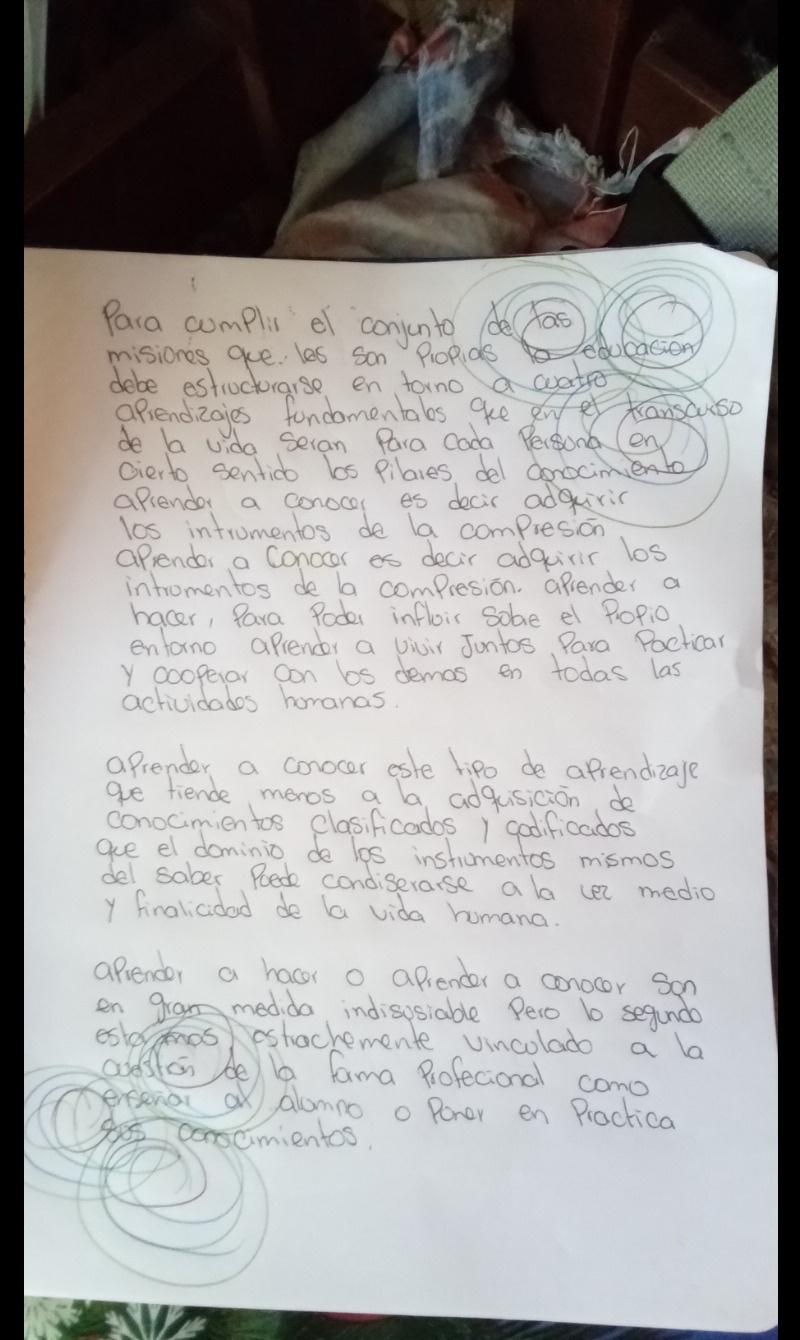 Para cumplir el conjunto de las
misiones que les son propias la educacion
debe estructurarse en torno a cuatro
aprendizajes fundamentales que en el transcurso
de la vida seran para cada persona en
cierto sentido los pilares del conocimiento
aprender a conocer es decir adquirir
los intrumentos de la compresión
aprender a conocer es decir adquirir los
intrumentos de la compresión. aprender a
hacer, para poder influir sobre el propio
entorno aprender a vivir juntos para pacticar
y cooperar con los demas en todas las
actividades humanas.
aprender a conocer este tipo de aprendizaje
que tiende menos a la adquisición de
conocimientos clasificados y codificados
que el dominio de los instrumentos mismos
del saber puede condiserarse a la vez medio
y finalicidad de la vida humana.
aprender a hacer o aprender a conocer son
en gran medida indisosiable pero lo segundo
esta mas estrachemente vinculado a la
cuestión de la fama profecional como
enseñar al alumno o poner en practica
sus conocimientos.